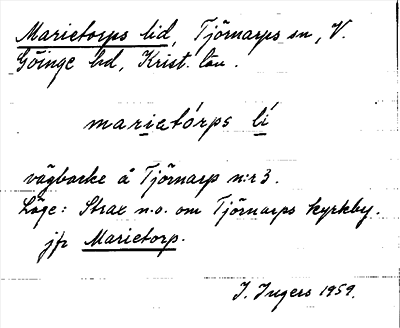 Marietorps lid, Tjörnarps sn, V.
Göinge hd, Krist. län.
marietórps lí
vägbacke å Tjörnarp n:r 3.
Läge: Strax n.o. om Tjörnarps kyrkby.
jfr Marietorp.
I. Ingers 1959.